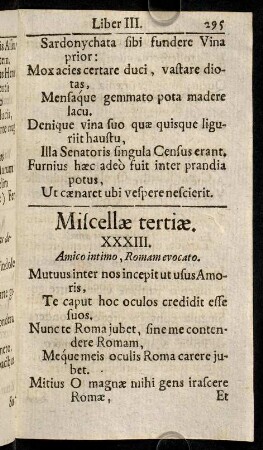 Liber III. 295
Sardonychata sibi fundere Vina
prior:
Mox acies certare duci, vastare dio-
tas,
Mensáque gemmato pota madere
lacu.
Denique vina suo quæ quisque ligu-
riit haustu,
Illa Senatoris singula Census erant.
Furnius hæc adeò fuit inter prandia
potus,
Ut cænaret ubi vespere nescierit.
Miscellæ tertiæ.
XXXIII.
Amico intimo, Romam evocato.
Mutuus inter nos incepit ut usus Amo-
ris,
Te caput hoc oculos credidit esse
suos.
Nunc te Roma jubet, sine me conten-
dere Romam,
Meque meis oculis Roma carere ju-
bet.
Mitius O magnæ mihi gens irascere
Romæ,
Et